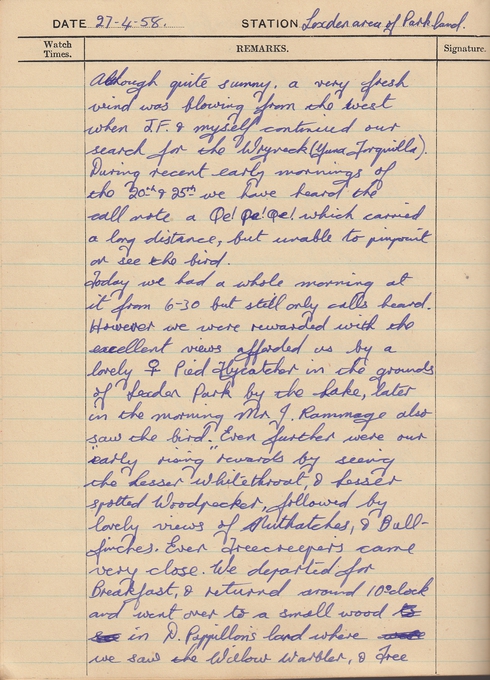 DATE 27-4-58. STATION Lexden area of Parkland.
Watch Times. REMARKS. Signature.
Although quite sunny, a very fresh
wind was blowing from the west
when J.F. & myself continued our
search for the Wryneck (Yunx Torquilla).
During recent early mornings of
the 20th & 25th we have heard the
call note a Qe! Qe! Qe! which carried
a long distance, but unable to pinpoint
or see the bird.
Today we had a whole morning at
it from 6-30 but still only calls heard.
However we were rewarded with the
excellent views afforded us by a
lovely ♀ Pied Flycatcher in the grounds
of Lexden Park by the Lake, later
in the morning Mr J. Rammage also
saw the bird. Even further were our
"early rising" rewards by seeing
the Lesser Whitethroat, & Lesser
spotted Woodpecker, followed by
lovely views of Nuthatches, & Bull-
finches. Even Treecreepers came
very close. We departed for
Breakfast, & returned around 10oclock
and went over to a small wood
in D. Papillon's land where
we saw the Willow Warbler, & Tree